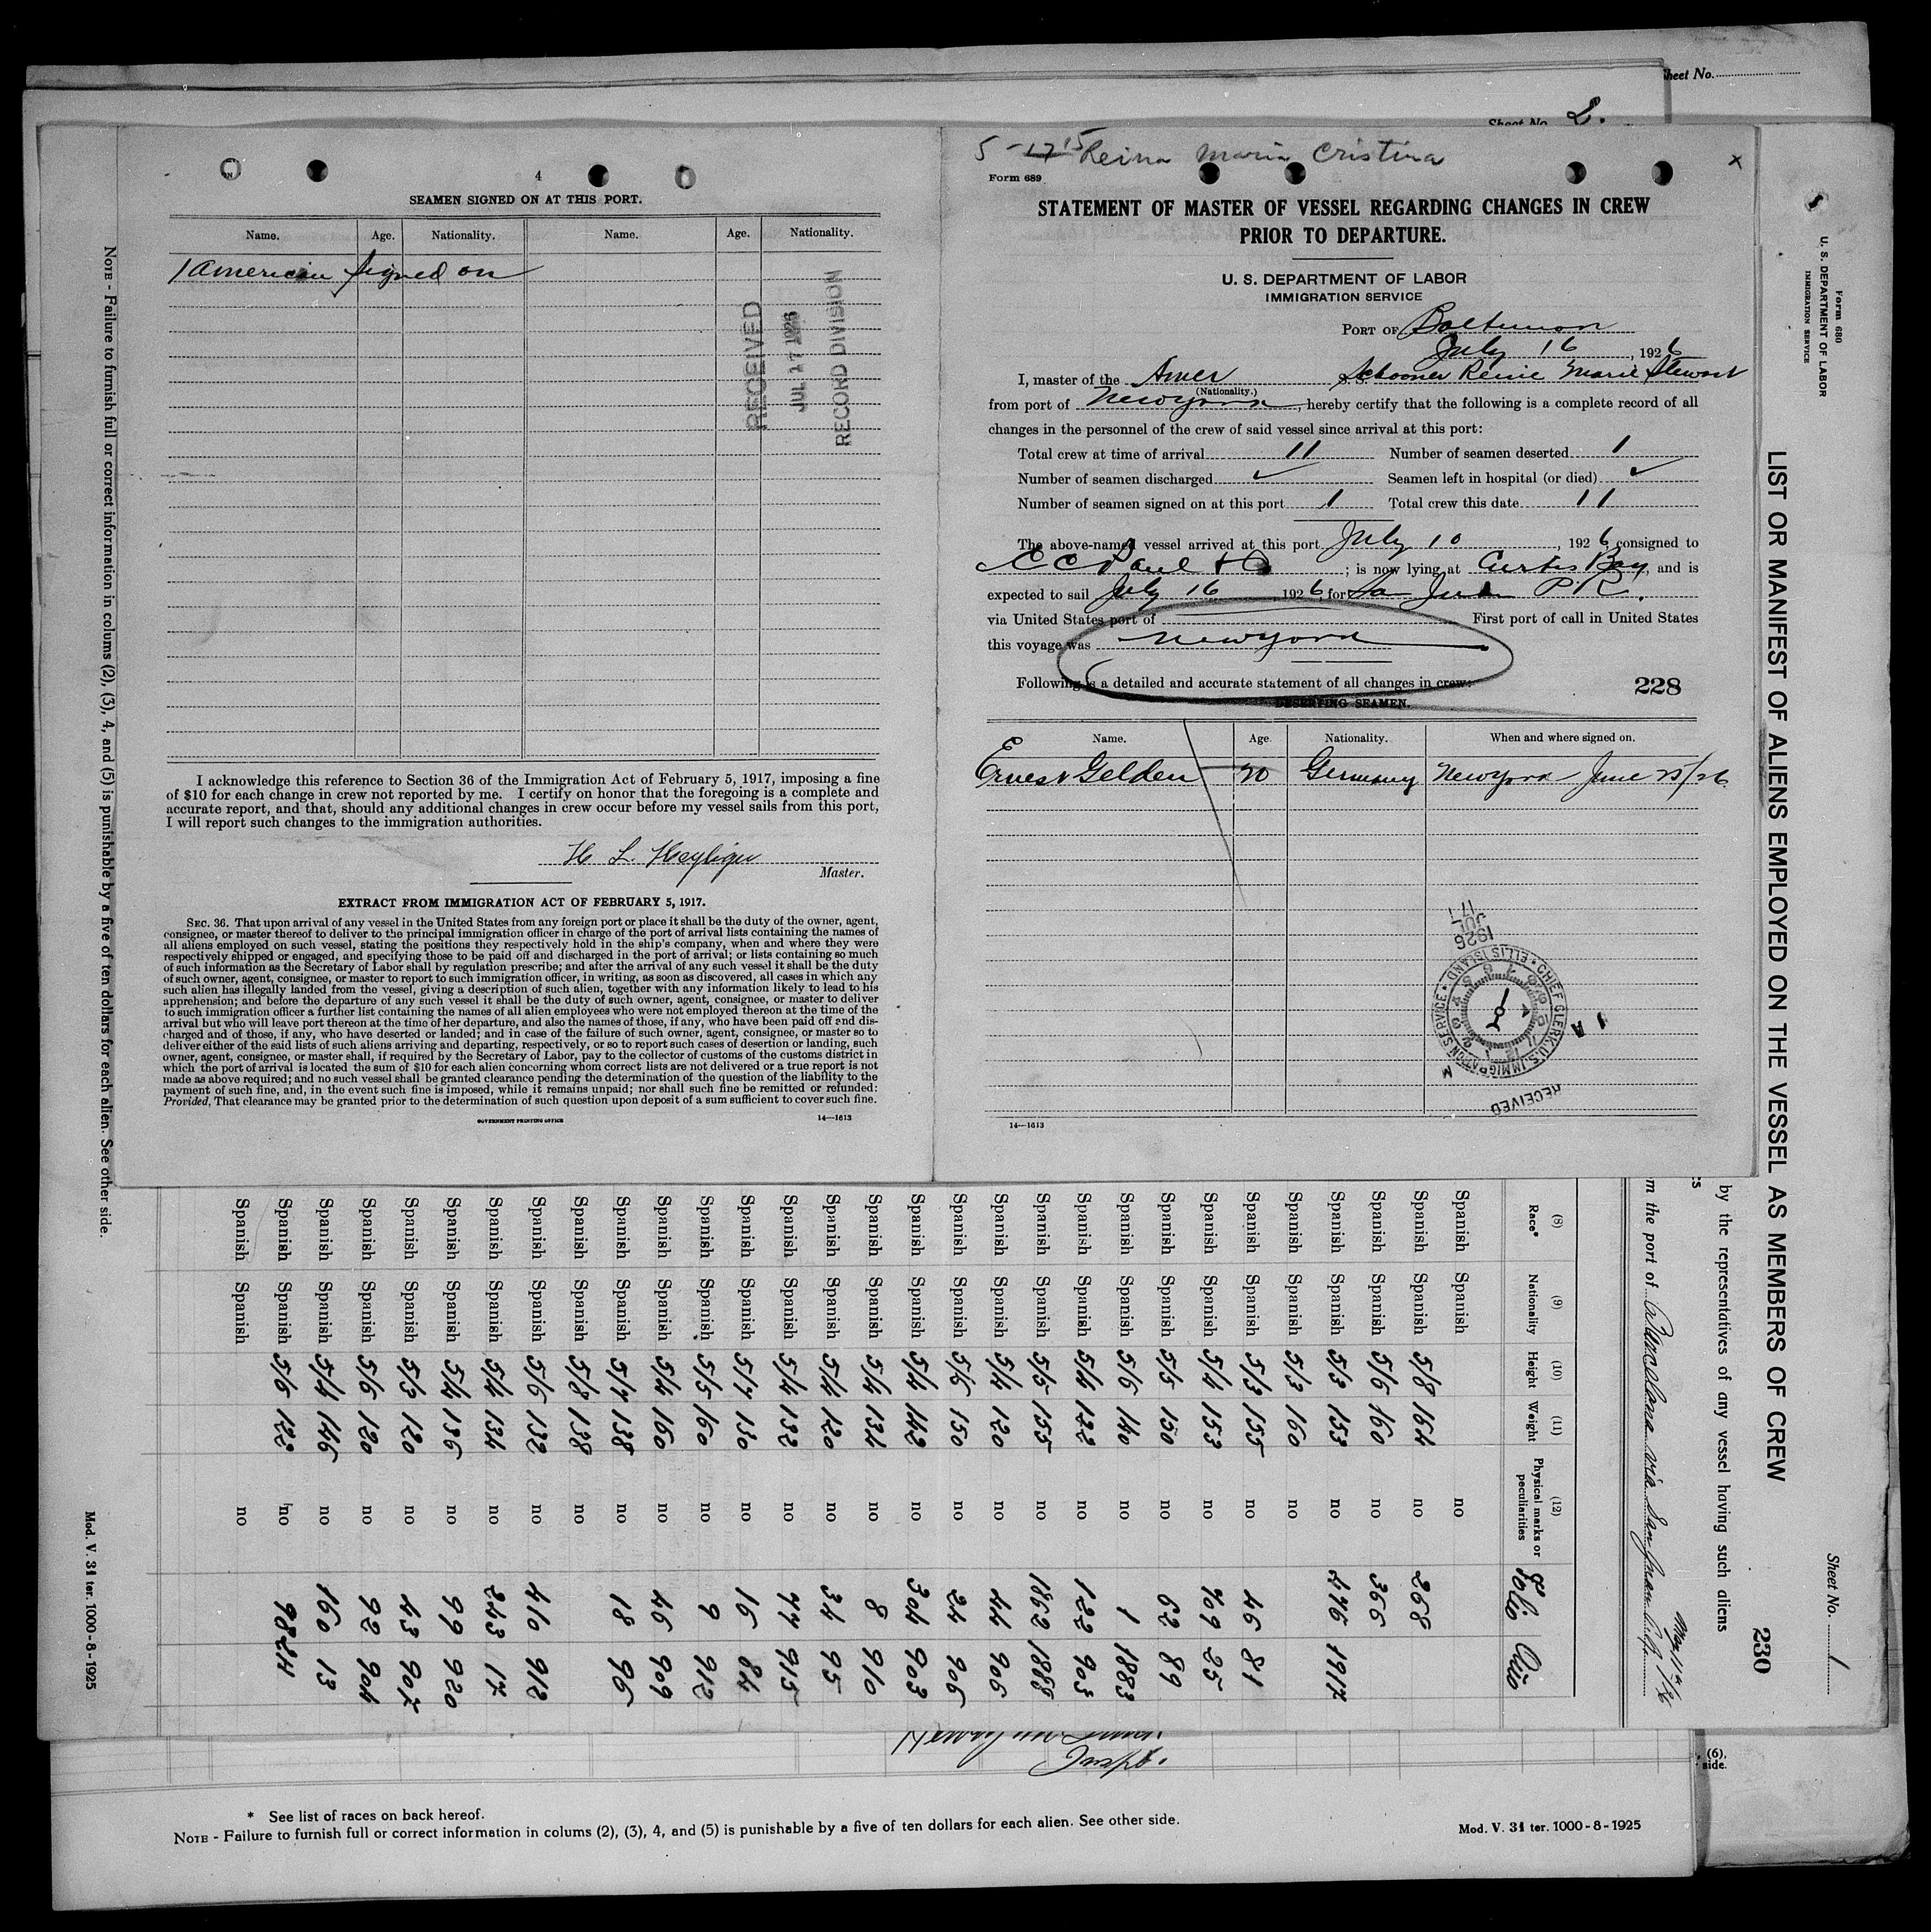 Sheet No.
Sheet No. 2.
4
SEAMEN SIGNED ON AT THIS PORT.
Name. Age. Nationality. Name. Age. Nationality.
1 American signed on
RECEIVED
JUL 17 1926
RECORD DIVISION
I acknowledge this reference to Section 36 of the Immigration Act of February 5, 1917, imposing a fine
of $10 for each change in crew not reported by me. I certify on honor that the foregoing is a complete and
accurate report, and that, should any additional changes in crew occur before my vessel sails from this port,
I will report such changes to the immigration authorities.
H. L. Heyliger
Master.
EXTRACT FROM IMMIGRATION ACT OF FEBRUARY 5, 1917.
SEC. 36. That upon arrival of any vessel in the United States from any foreign port or place it shall be the duty of the owner, agent,
consignee, or master thereof to deliver to the principal immigration officer in charge of the port of arrival lists containing the names of
all aliens employed on such vessel, stating the positions they respectively hold in the ship's company, when and where they were
respectively shipped or engaged, and specifying those to be paid off and discharged in the port of arrival; or lists containing so much
of such information as the Secretary of Labor shall by regulation prescribe; and after the arrival of any such vessel it shall be the duty
of such owner, agent, consignee, or master to report to such immigration officer, in writing, as soon as discovered, all cases in which any
such alien has illegally landed from the vessel, giving a description of such alien, together with any information likely to lead to his
apprehension; and before the departure of any such vessel it shall be the duty of such owner, agent, consignee, or master to deliver
to such immigration officer a further list containing the names of all alien employees who were not employed thereon at the time of the
arrival but who will leave port thereon at the time of her departure, and also the names of those, if any, who have been paid off and dis-
charged and of those, if any, who have deserted or landed; and in case of the failure of such owner, agent, consignee, or master so to
deliver either of the said lists of such aliens arriving and departing, respectively, or so to report such cases of desertion or landing, such
owner, agent, consignee, or master shall, if required by the Secretary of Labor, pay to the collector of customs of the customs district in
which the port of arrival is located the sum of $10 for each alien concerning whom correct lists are not delivered or a true report is not
made as above required; and no such vessel shall be granted clearance pending the determination of the question of the liability to the
payment of such fine, and, in the event such fine is imposed, while it remains unpaid; nor shall such fine be remitted or refunded:
Provided, That clearance may be granted prior to the determination of such question upon deposit of a sum sufficient to cover such fine.
GOVERNMENT PRINTING OFFICE 14—1613
Reina Maria Cristina
x
Form 689
STATEMENT OF MASTER OF VESSEL REGARDING CHANGES IN CREW
PRIOR TO DEPARTURE.
U. S. DEPARTMENT OF LABOR
IMMIGRATION SERVICE
PORT OF Baltimore
July 16, 1926
I, master of the Amer Schooner Reine Marie Stewart
(Nationality.)
from port of New York, hereby certify that the following is a complete record of all
changes in the personnel of the crew of said vessel since arrival at this port:
Total crew at time of arrival 11 Number of seamen deserted 1
Number of seamen discharged ✓ Seamen left in hospital (or died) ✓
Number of seamen signed on at this port 1 Total crew this date 11
The above-named vessel arrived at this port July 10, 1926, consigned to
C C Paul & Co; is now lying at Curtis Bay, and is
expected to sail July 16, 1926, for San Juan P.R.
via United States port of First port of call in United States
this voyage was New York
Following is a detailed and accurate statement of all changes in crew:
228
DESERTING SEAMEN.
Name. Age. Nationality. When and where signed on.
Ernest Gelden 20 Germany New York June 25/26
1926
JUL
17
CHIEF CLERK, U.S. IMMIGRATION SERVICE ELLIS ISLAND
RECEIVED
14—1613
Form 680
U. S. DEPARTMENT OF LABOR
IMMIGRATION SERVICE
LIST OR MANIFEST OF ALIENS EMPLOYED ON THE VESSEL AS MEMBERS OF CREW
Sheet No. 1
230
by the representatives of any vessel having such aliens
m the port of Barcelona via San Juan
(8) Race* (9) Nationality (10) Height (11) Weight (12) Physical marks or peculiarities Folio Año
Spanish Spanish no
Spanish Spanish 5/8 164 268
Spanish Spanish 5/6 160 no 366
Spanish Spanish 5/3 153 no 476 1917
Spanish Spanish 5/3 160 no
Spanish Spanish 5/3 155 no 46 81
Spanish Spanish 5/4 153 no 709 25
Spanish Spanish 5/5 150 no 62 89
Spanish Spanish 5/6 140 no 1 1883
Spanish Spanish 5/4 122 no 122 903
Spanish Spanish 5/5 155 no 1862 1888
Spanish Spanish 5/4 120 no 44 906
Spanish Spanish 5/6 150 no 24 906
Spanish Spanish 5/4 142 no 304 903
Spanish Spanish 5/4 134 no 8 910
Spanish Spanish 5/4 120 no 34 95
Spanish Spanish 5/4 132 no 74 915
Spanish Spanish 5/7 130 no 16 84
Spanish Spanish 5/5 160 no 9 912
Spanish Spanish 5/4 160 no 46 909
Spanish Spanish 5/7 138 no 18 96
Spanish Spanish 5/8 138 no
Spanish Spanish 5/6 132 no 410 912
Spanish Spanish 5/4 134 no 243 17
Spanish Spanish 5/4 136 no 99 920
Spanish Spanish 5/3 120 no 43 907
Spanish Spanish 5/6 120 no 92 904
Spanish Spanish 5/4 146 no 160 13
Spanish Spanish 5/6 122 no
Spanish Spanish no
NOTE - Failure to furnish full or correct information in colums (2), (3), 4, and (5) is punishable by a five of ten dollars for each alien. See other side.
Mod. V. 31 ter. 1000-8-1925
Inspt.
(6).
side.
* See list of races on back hereof.
NOTE - Failure to furnish full or correct information in colums (2), (3), 4, and (5) is punishable by a five of ten dollars for each alien. See other side.
Mod. V. 31 ter. 1000-8-1925